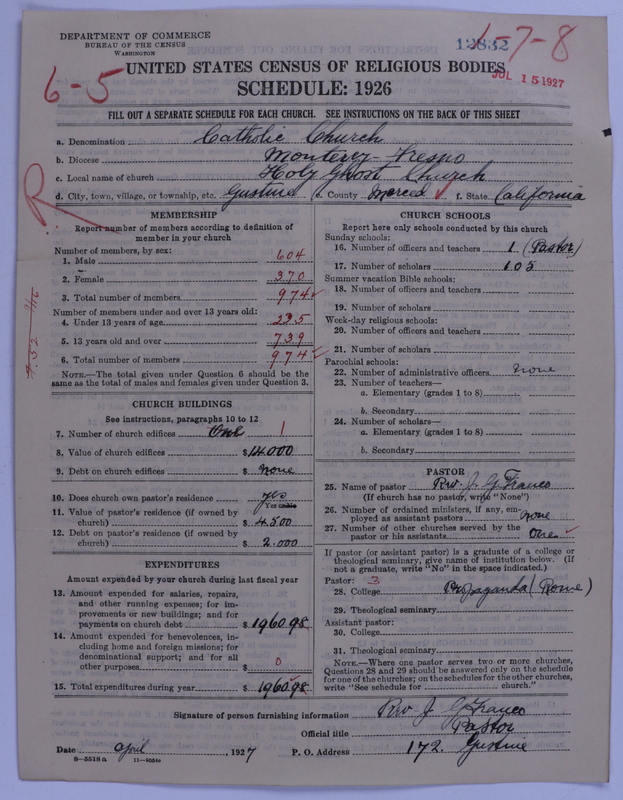 DEPARTMENT OF COMMERCE
BUREAU OF THE CENSUS
WASHINGTON
12832
1-7-8
JUL 15 1927
6-5
UNITED STATES CENSUS OF RELIGIOUS BODIES
SCHEDULE: 1926
FILL OUT A SEPARATE SCHEDULE FOR EACH CHURCH. SEE INSTRUCTIONS ON THE BACK OF THIS SHEET
a. Denomination Catholic Church
b. Diocese Monterey-Fresno
c. Local name of church Holy Ghost Church
d. City, town, village, or township, etc. Gustine e. County Merced f. State California
R
MEMBERSHIP
Report number of members according to definition of
member in your church
Number of members, by sex:
1. Male 604
2. Female 370
3. Total number of members 974
Number of members under and over 13 years old:
4. Under 13 years of age 235
5. 13 years old and over 739
6. Total number of members 974
NOTE.—The total given under Question 6 should be the
same as the total of males and females given under Question 3.
CHURCH BUILDINGS
See instructions, paragraphs 10 to 12
7. Number of church edifices One 1
8. Value of church edifices $14000
9. Debt on church edifices $ None
10. Does church own pastor's residence yes
Yes
11. Value of pastor's residence (if owned by
church) $ 4500
12. Debt on pastor's residence (if owned by
church) $ 2.000
EXPENDITURES
Amount expended by your church during last fiscal year
13. Amount expended for salaries, repairs,
and other running expenses; for im-
provements or new buildings; and for
payments on church debt $ 1960.98
14. Amount expended for benevolences, in-
cluding home and foreign missions; for
denominational support; and for all
other purposes $ 0
15. Total expenditures during year $ 1960.98
CHURCH SCHOOLS
Report here only schools conducted by this church
Sunday schools:
16. Number of officers and teachers 1 (Pastor)
17. Number of scholars 105
Summer vacation Bible schools:
18. Number of officers and teachers
19. Number of scholars
Week-day religious schools:
20. Number of officers and teachers
21. Number of scholars
Parochial schools:
22. Number of administrative officers none
23. Number of teachers—
a. Elementary (grades 1 to 8)
b. Secondary
24. Number of scholars—
a. Elementary (grades 1 to 8)
b. Secondary
PASTOR
25. Name of pastor Rev. J. G. Franco
(If church has no pastor, write "None")
26. Number of ordained ministers, if any, em-
ployed as assistant pastors none
27. Number of other churches served by the
pastor or his assistants One
If pastor (or assistant pastor) is a graduate of a college or
theological seminary, give name of institution below. (If
not a graduate, write "No" in the space indicated.)
Pastor: 3
28. College Propaganda (Rome)
29. Theological seminary
Assistant pastor:
30. College
31. Theological seminary
NOTE.—Where one pastor serves two or more churches,
Questions 28 and 29 should be answered only on the schedule
for one of the churches; on the schedules for the other churches,
write "See schedule for church."
Signature of person furnishing information Rev J G Franco
Official title Pastor
Date April, 1927 P. O. Address 172. Gustine
8—5518a 11—9054a